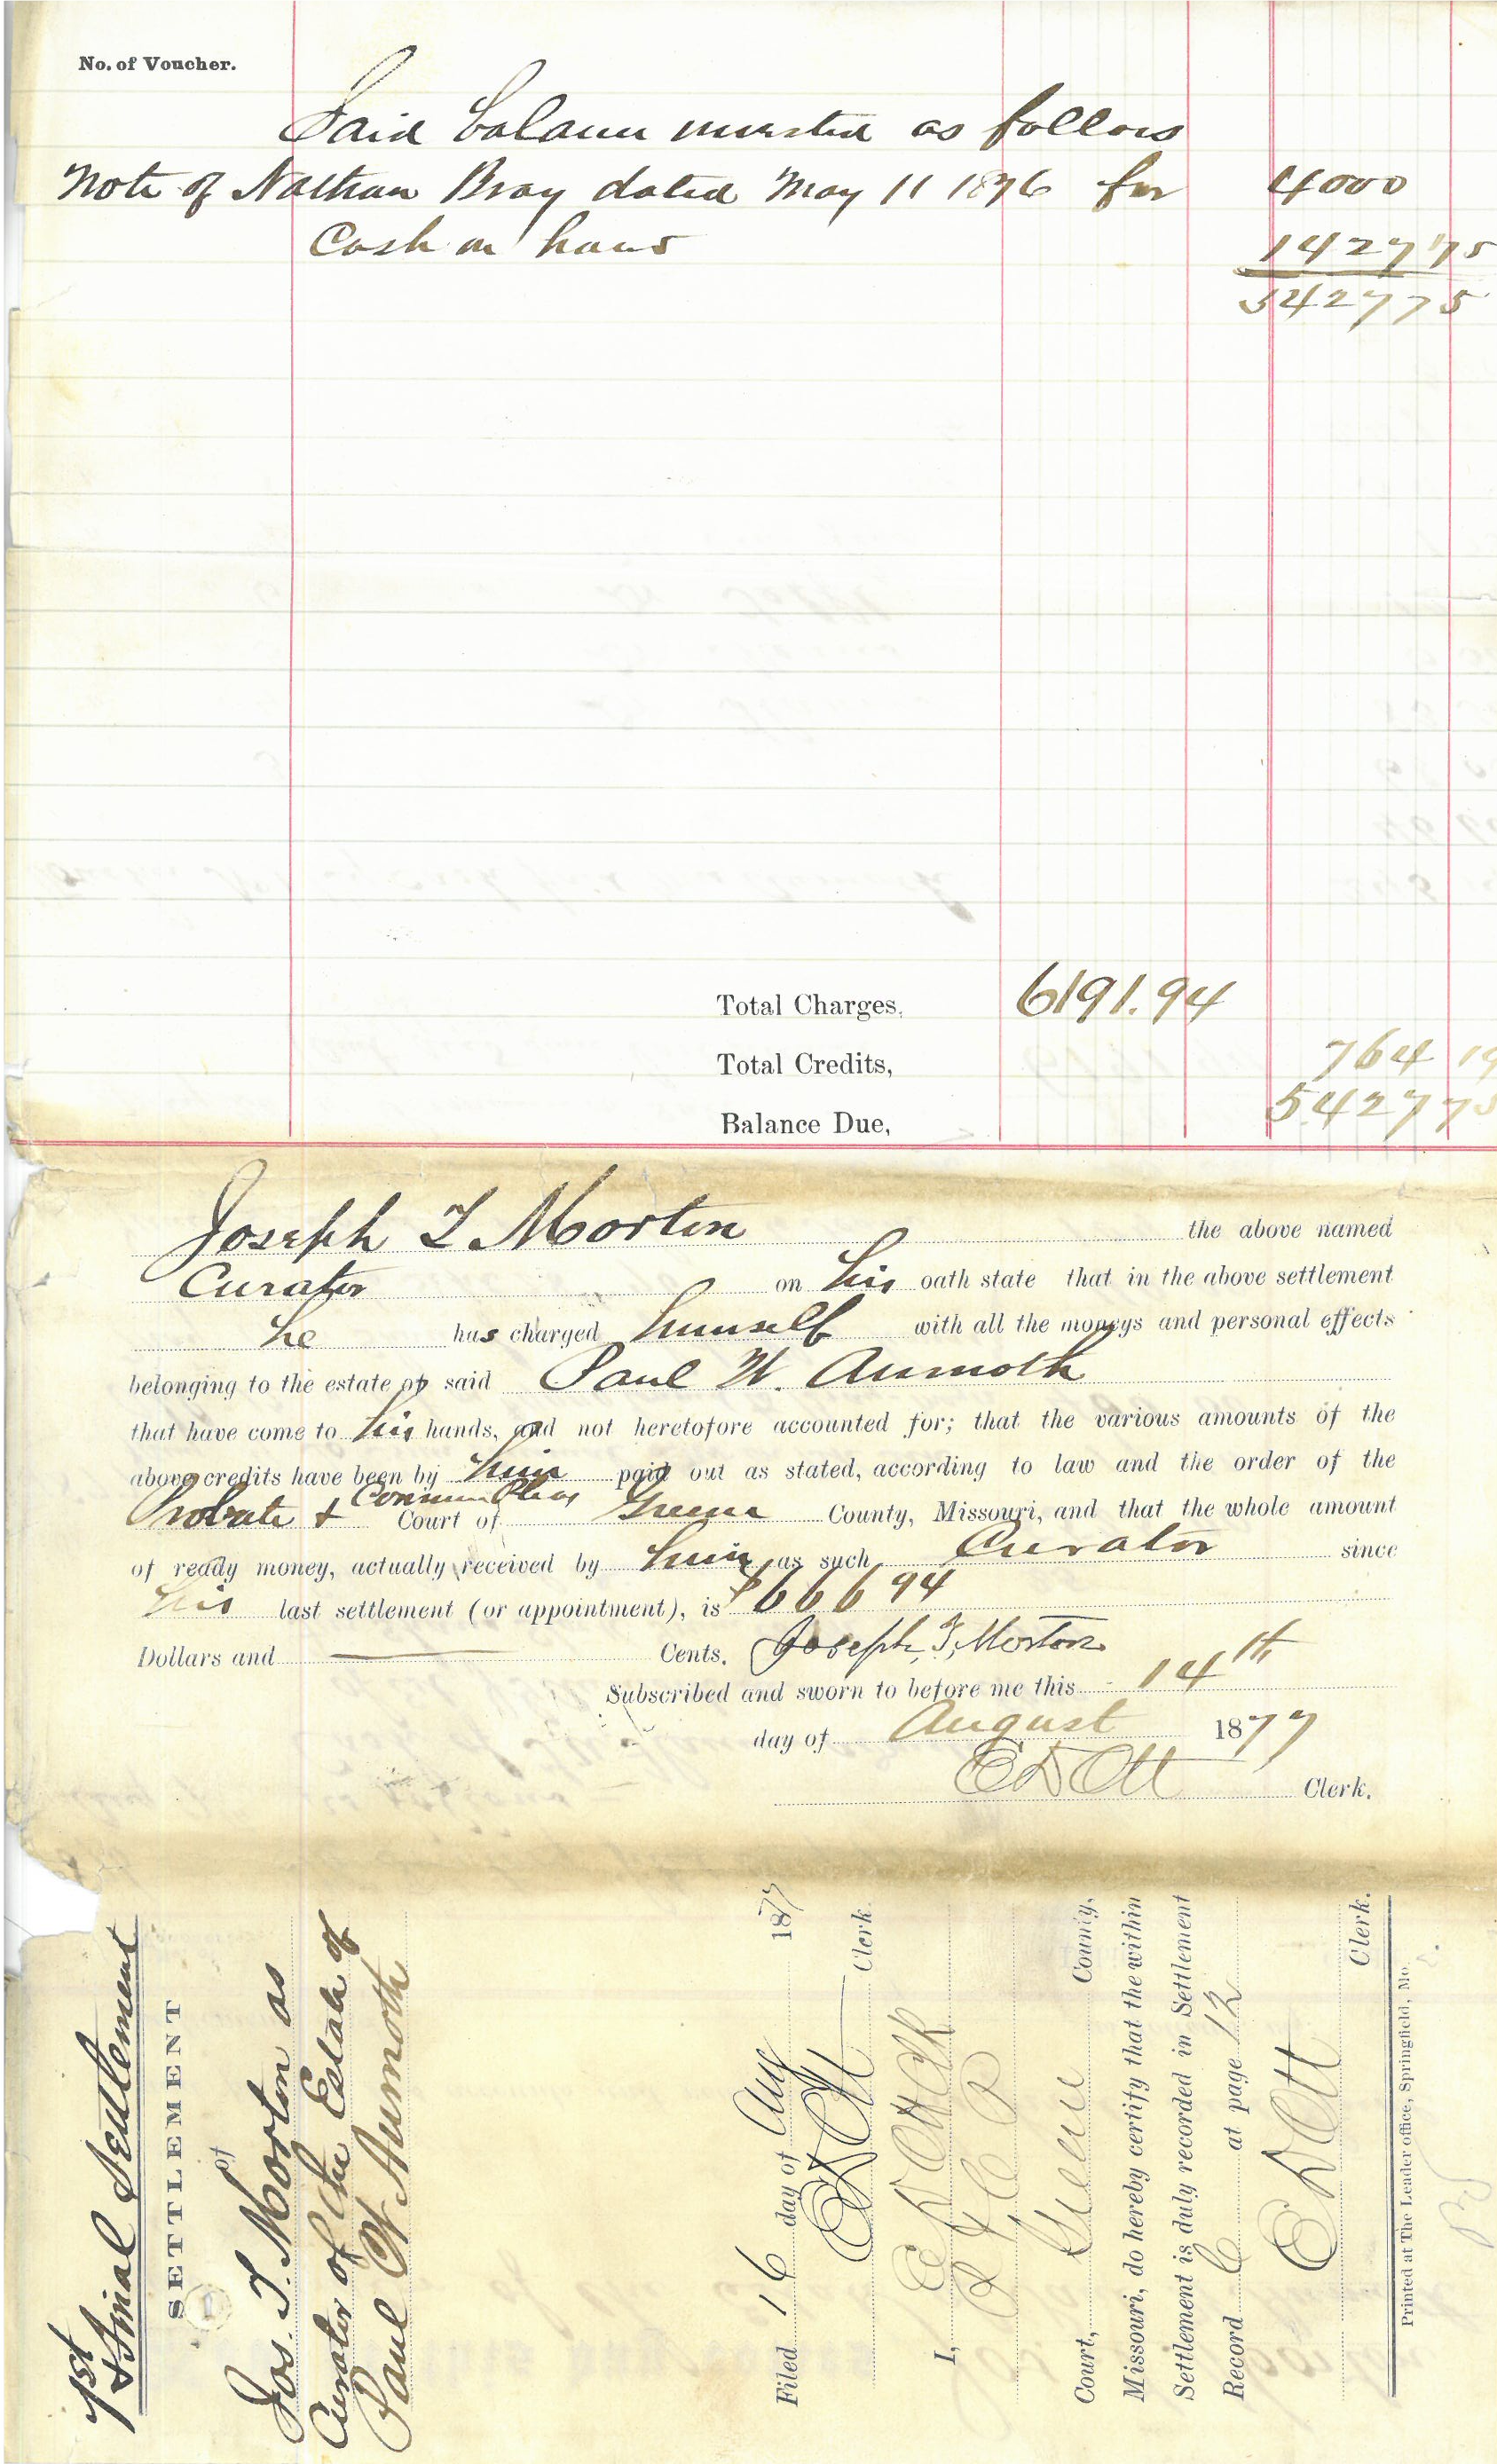 No. of Voucher.
Said balance invested as follows
Note of Nathan Bray dated May 11 1876 for 4000
Cash on hand 1427 75
5427 75
Total Charges, 6191.94
Total Credits, 764 19
Balance Due, 5427 75
Joseph T Morton the above named
Curator on his oath state that in the above settlement
he has charged himself with all the moneys and personal effects
belonging to the estate of said Paul W. Aumoth
that have come to his hands, and not heretofore accounted for; that the various amounts of the
above credits have been by him paid out as stated, according to law and the order of the
Probate & Common Pleas Court of Greene County, Missouri, and that the whole amount
of ready money, actually received by him as such Curator since
his last settlement (or appointment), is $666 94
Dollars and — Cents. Joseph T. Morton
Subscribed and sworn to before me this 14th
day of August 1877
E D Ott Clerk.
1st
& Final Settlement
SETTLEMENT
of
Jos. T. Morton as
Curator of the Estate of
Paul W. Aumoth
Filed 16 day of Aug 1877
E D Ott Clerk
I, E D Ott Clk
P & C P
Court, Greene County,
Missouri, do hereby certify that the within
Settlement is duly recorded in Settlement
Record C at page 12
E D Ott
Clerk.
Printed at The Leader office, Springfield, Mo.